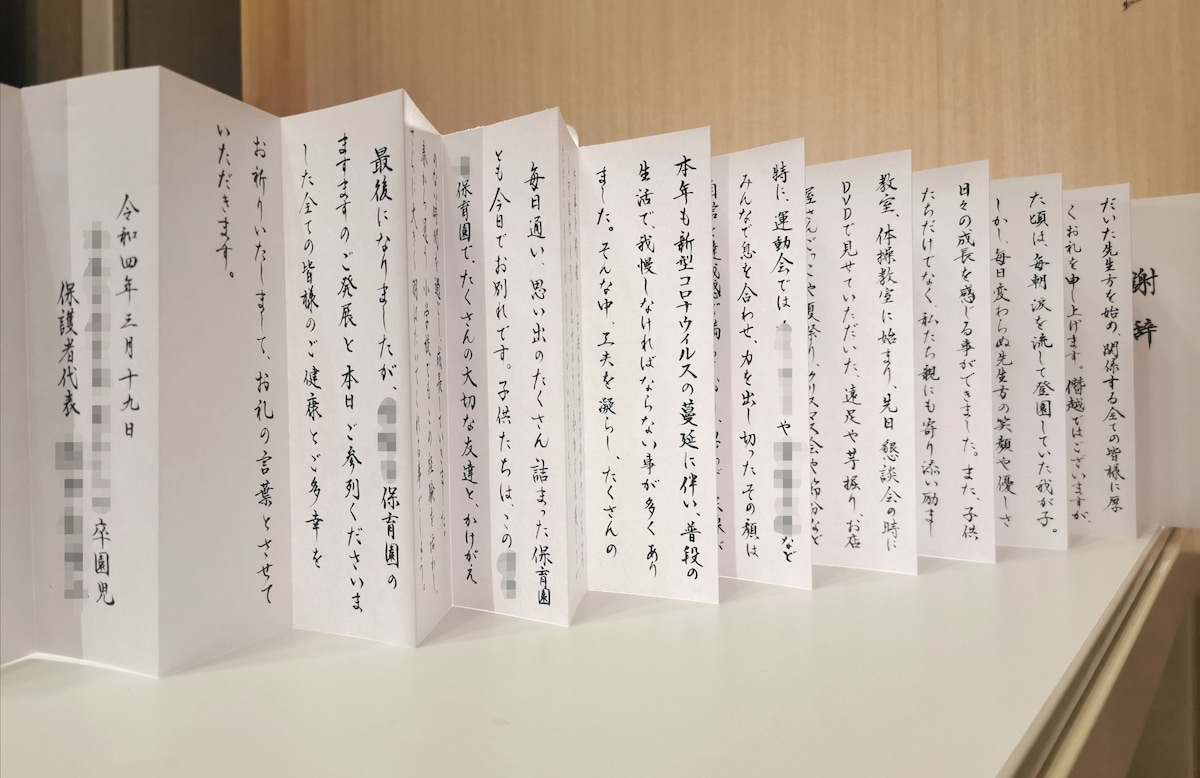 謝辞
だいた先生方を始め、関係する全ての皆様に厚
くお礼を申し上げます。僭越ではございますが、
た頃は、毎朝涙を流して登園していた我が子。
しかし、毎日変わらぬ先生方の笑顔や優しさ
日々の成長を感じる事ができました。また、子供
たちだけでなく、私たち親にも寄り添い励ま
教室、体操教室に始まり、先日懇談会の時に
DVDで見せていただいた、遠足や芋掘り、お店
屋さんごっこや夏祭り、クリスマス会や節分など
特に、運動会では や など
みんなで息を合わせ、力を出し切ったその顔は
本年も新型コロナウィルスの蔓延に伴い、普段の
生活で、我慢しなければならない事が多くあり
ました。そんな中、工夫を凝らし、たくさんの
毎日通い、思い出のたくさん詰まった保育園
とも今日でお別れです。子供たちは、この
保育園で、たくさんの大切な友達と、かけがえ
最後になりましたが、 保育園の
ますますのご発展と本日ご参列くださいま
した全ての皆様のご健康とご多幸を
お祈りいたしまして、お礼の言葉とさせて
いただきます。
令和四年三月十九日
卒園児
保護者代表